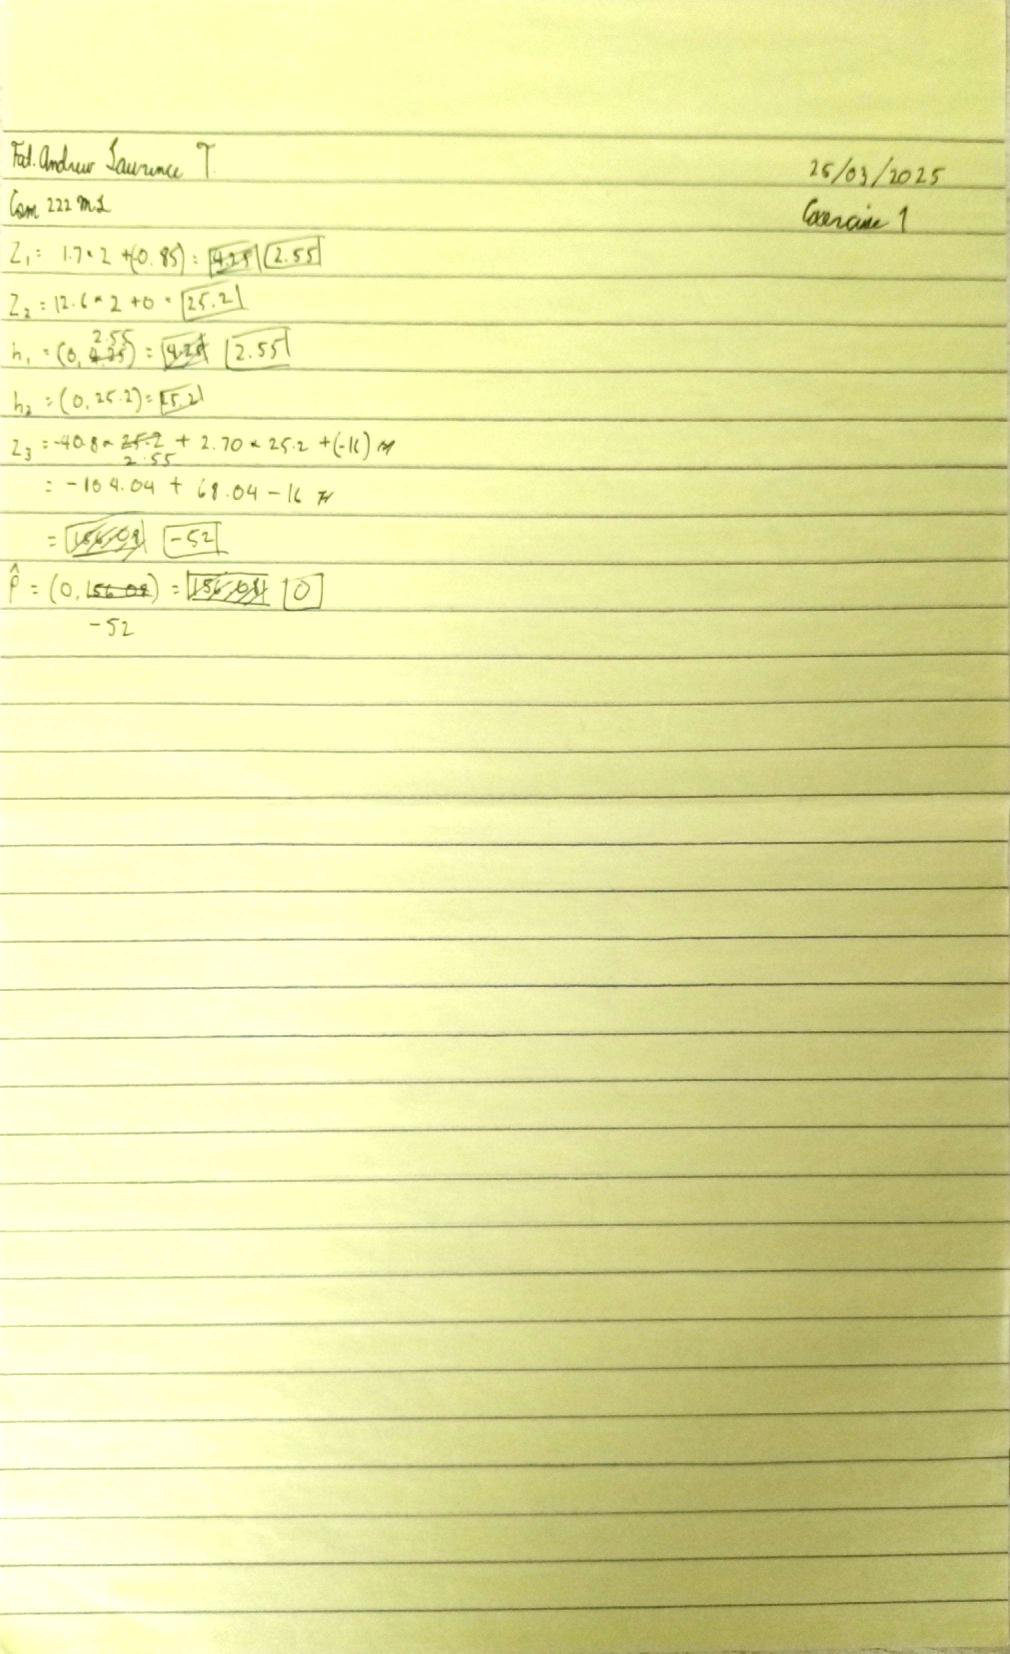 Andrew Laurence T.
25/03/2025
Com 222 ML
Exercise 1
Z₁ = 1.7 * 2 + (0.85) = 4.25 2.55
Z₂ = 12.6 * 2 + 0 = 25.2
h₁ = (0, 4.25 2.55) = 4.25 2.55
h₂ = (0, 25.2) = 25.2
Z₃ = -40.8 * 25.2 2.55 + 2.70 * 25.2 + (-16)
= -104.04 + 68.04 - 16
= 156.08 -52
P̂ = (0, 156.08) = 156.08 0
-52